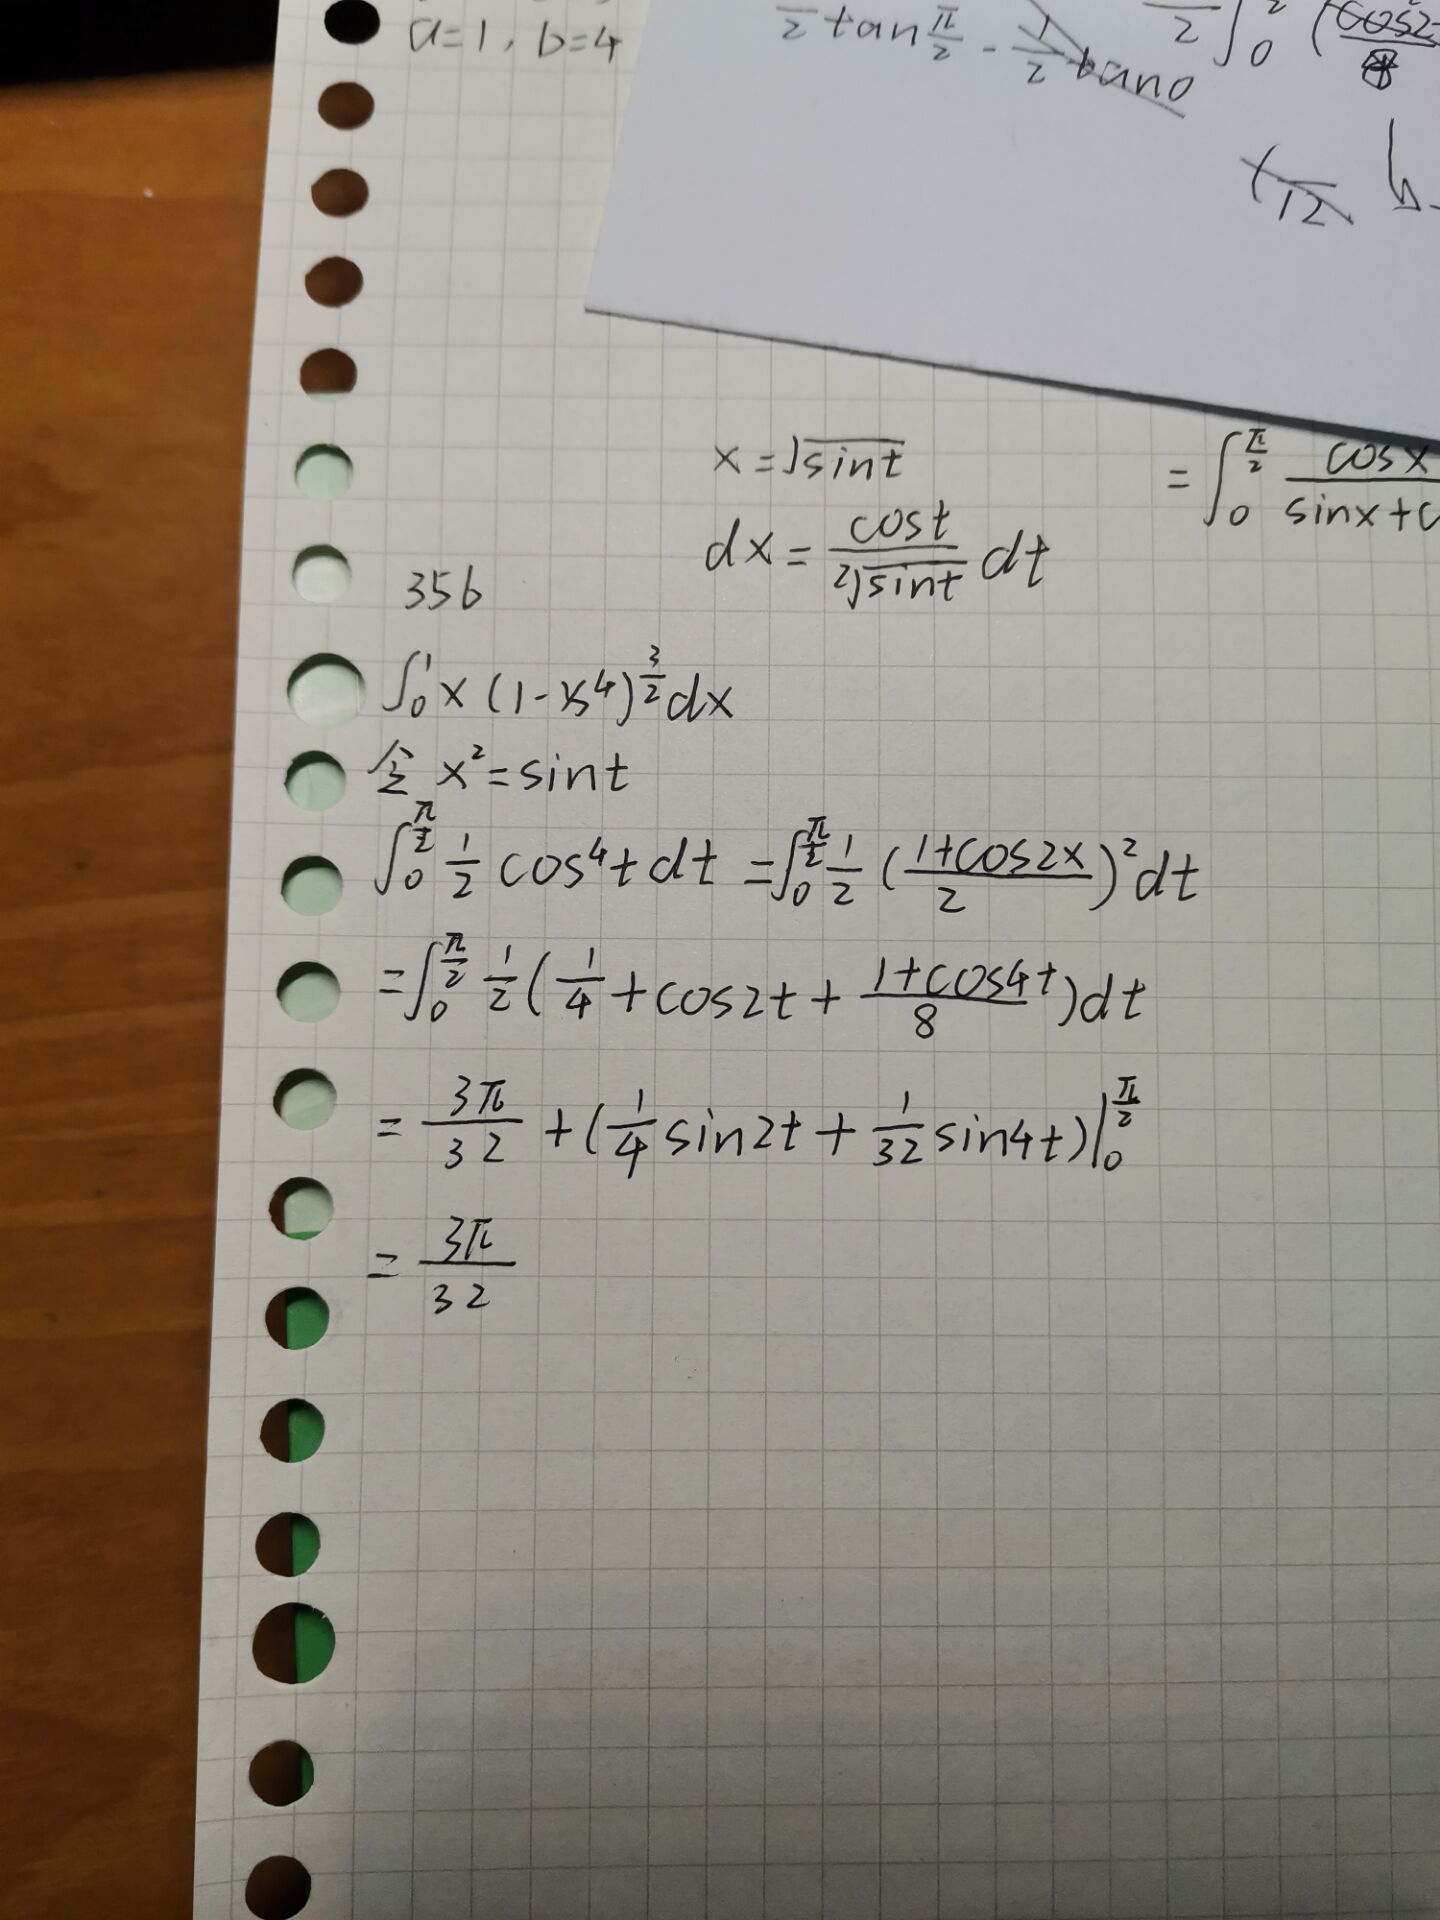 a=1, b=4
π/2 tan π/2 - 1/2 tan0
12
x=√sint
dx= cost/2√sint dt
=∫₀^(π/2) cosx/sinx+c
356
∫₀¹ x(1-x⁴)^(3/2) dx
令 x²=sint
∫₀^(π/2) 1/2 cos⁴t dt =∫₀^(π/2) 1/2 (1+cos2x/2)² dt
=∫₀^(π/2) 1/2 (1/4 + cos2t + 1+cos4t/8) dt
= 3π/32 + (1/4 sin2t + 1/32 sin4t)|₀^(π/2)
= 3π/32